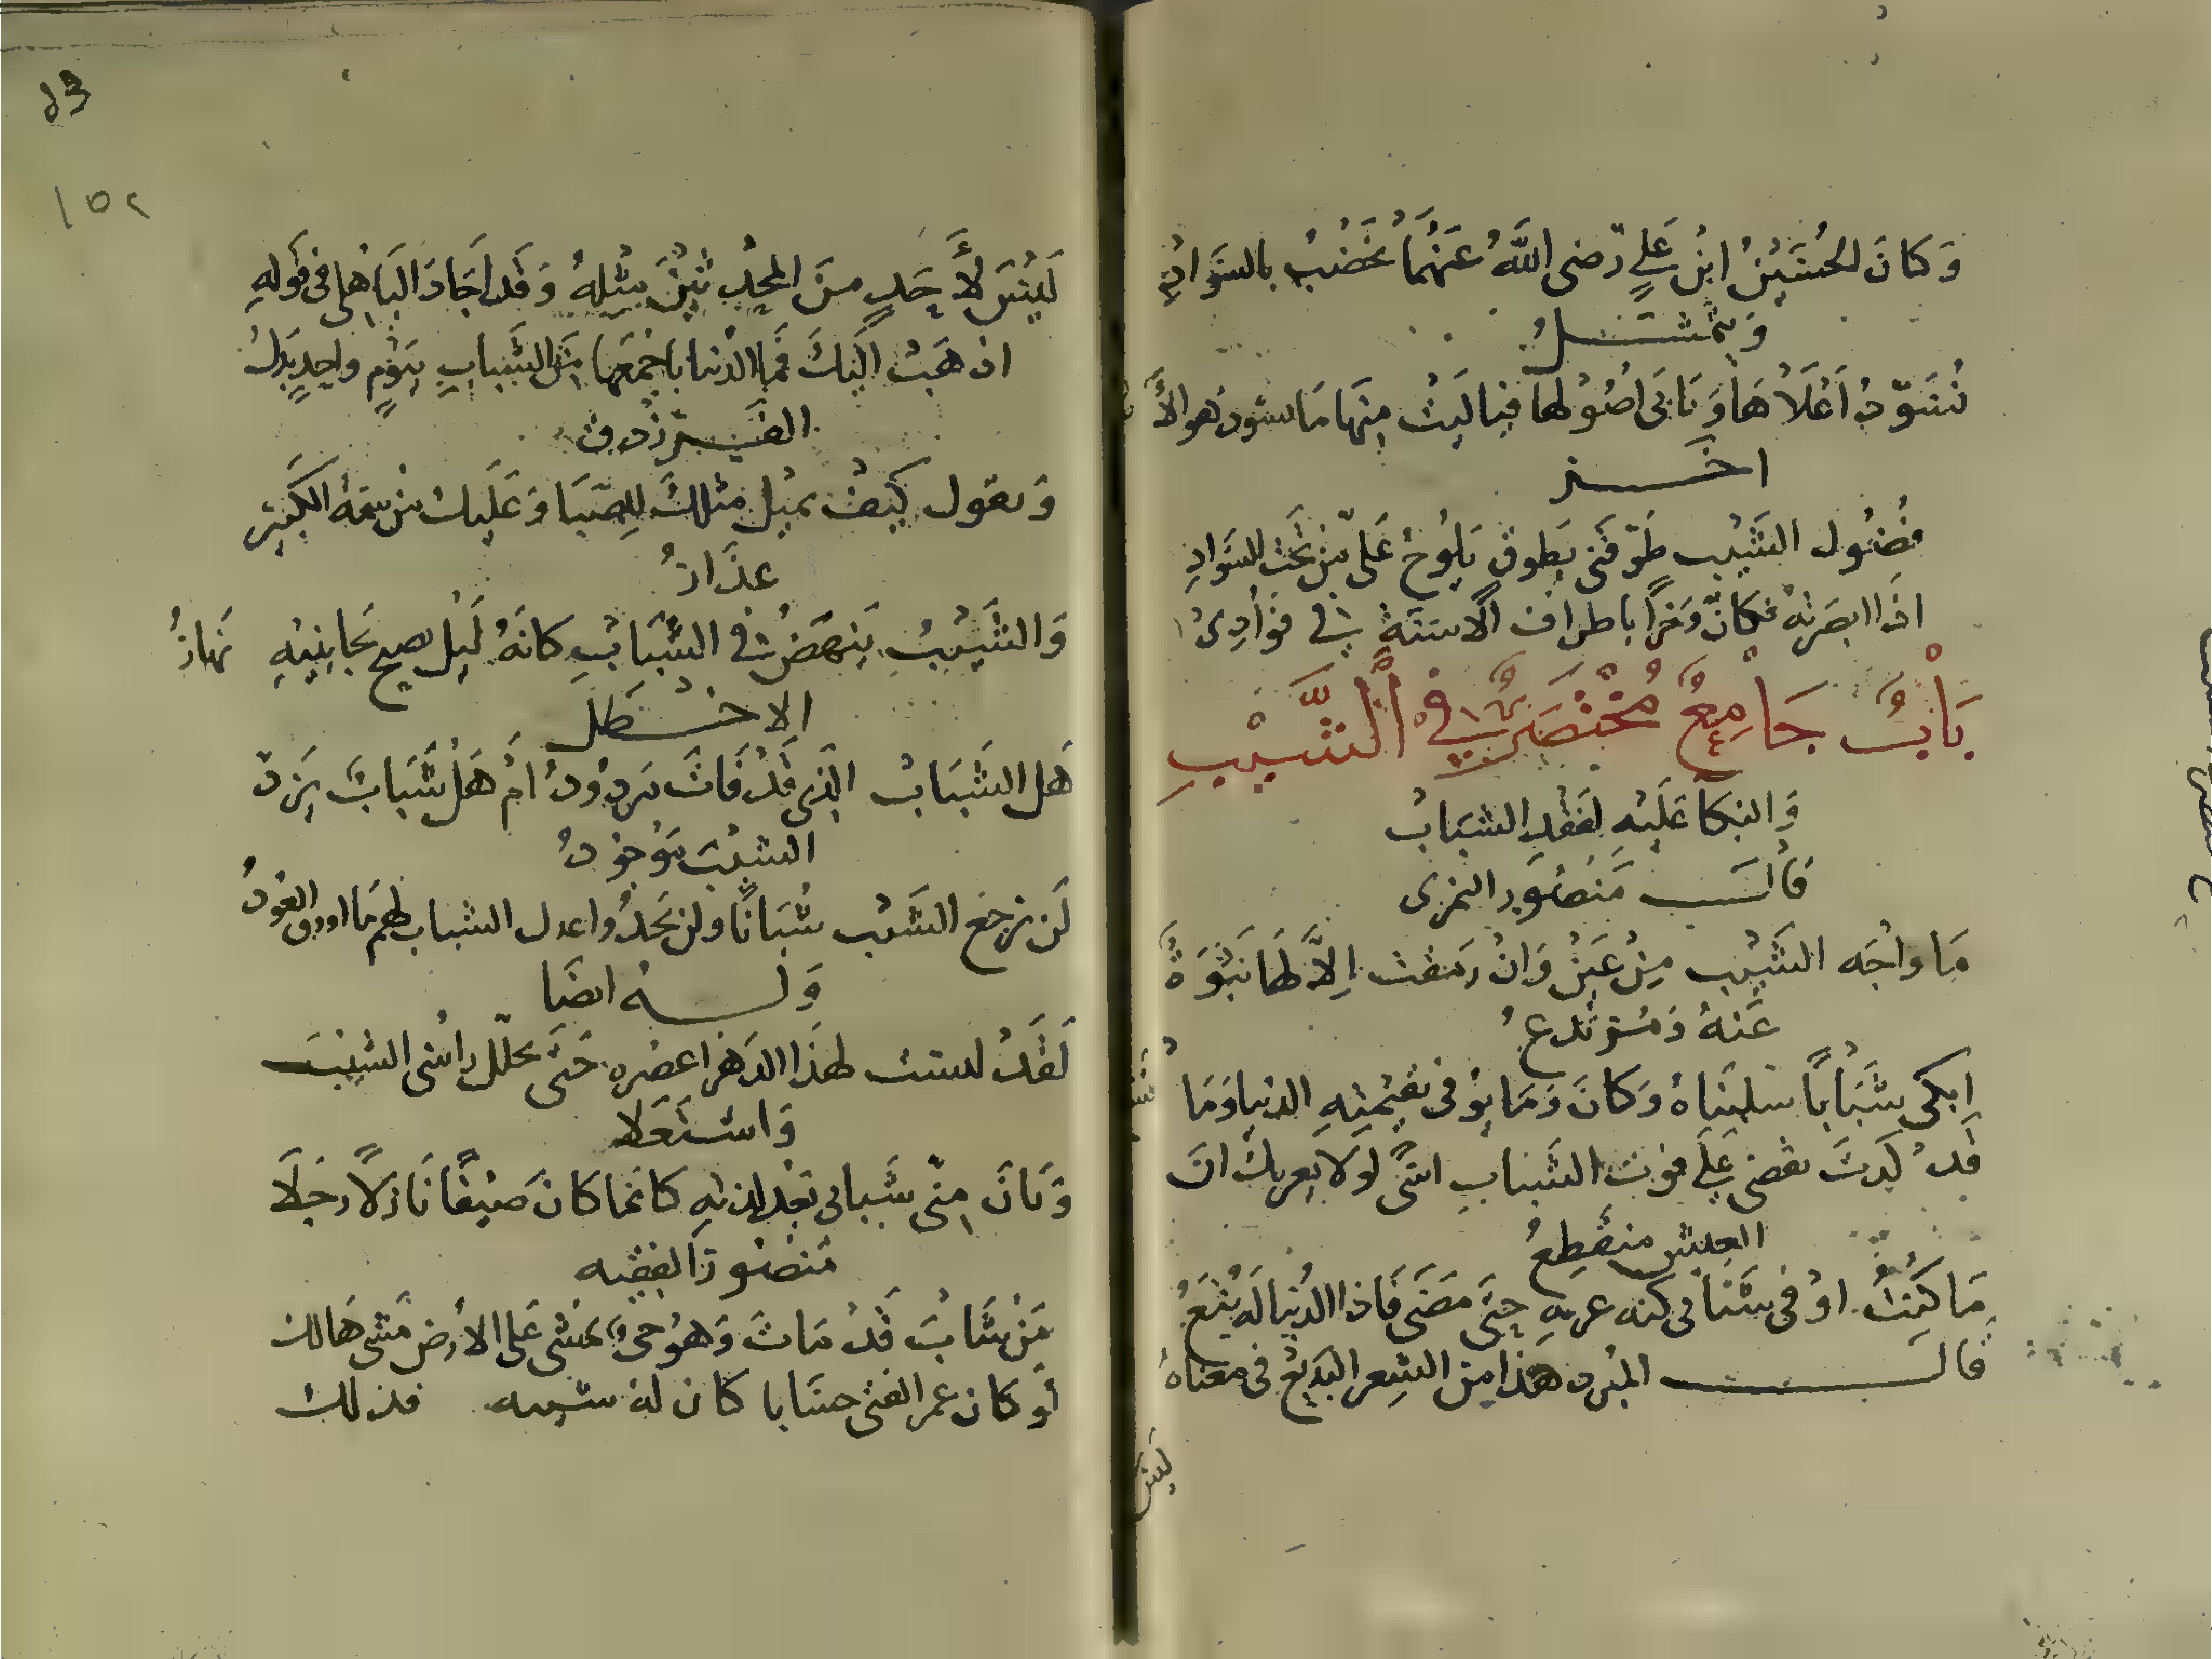 وَكَانَ الحُسَيْنُ ابْنُ عَلِيٍّ رَضى اللَّهُ عَنْهُمَا يَخْضُبُ بالسَّوَادِ
وَيتمَثَّلُ
نُسَوِّدُ اَعْلَاهَا وَتَابَى اصُوْلُهَا فيا لَيْتَ مِنْهَا مَا يسَوّدُ هو الأَ
اخَر
فُضُول الشَّيْب طَوَّقَنى بِطَوق يَلُوحُ عَلىّ مِنْ تَحْتِ السَّوَادِ
اذَا ابصَرتهُ فكانّ وَخزًا باطراف الَاسنةِ في فؤَادِىْ
بَابُ جَامِعُ مُخْتَصَرٌ فِي الشَّيْبِ
وَالبُكَا عَلَيْهِ لفَقْدِ الشبَابْ
قَالَ مَنصُور النمرى
مَا وَاجَه الشَّيْب مِنْ عَيْنٍ وَانْ رمَقت اِلَّا لهَا نَبْوَةٌ
عَنْهُ وَمُرْتَدعُ
ابكى شَبَابًا سلبنَاهُ وَكَانَ وَمَا يوفى بقيمَتِهِ الدنيا وَمَا
قَدْ كِدتَ تقضى عَلَى فوت الشَّبَابِ اسًى لولا يعزيك انَ
العيش منقَطِعُ
مَا كُنْتُ اوْفى شَبَابى كنه عزتهِ حتَّى مَضَى فَاذا الدُنيا لَهُ تَبَعُ
قال المبرد هَذا مِن الشِعر البَديع في معناهُ
ليس
١٥٢
لَيْسَ لأَحَدٍ مِنَ المحدثيْنَ مِثْلهُ وَقَد اَجَادَ البَاهِلى فى قَولهِ
اذهَبْ اليَكَ فمَا الدنيا باجمَعهَا مِنَ الشَّبابِ بيَوْمٍ واحِدٍ بَدَلُ
الفَرزدق
وَتقول كَيفَ يميْل مثلكَ لِلصِّبَا وَعَلَيك مِنْ سمة الكَبِيْر
عذَارُ
وَالشَّيْبُ يَنهَضُ في الشَّبَابِ كانهُ لَيْل يصيح بجَانِبَيْهِ نهَارُ
الاخْطَل
هَل الشَّبَابُ الذِى قَدْ فَاتَ مَردُودُ امْ هَلْ شَبَابَ يَرَدّ
الشيْبَ مَوْجُودُ
لَن يرجعَ الشَّيْب شُبَانًا ولن يَجدُوا عدل الشباب لهم مَا اورق العُودُ
وَلَهُ ايضَا
لَقَدْ لبست لهَذَا الدَهر اعصُره حَتَّى تجلّل رأسى الشيْبَ
وَاشْتَعَلا
وَبَانَ مِنّى شَبابى بَعْد لذتهِ كانمَا كَانَ ضَيْفًا نَازلاً رَحَلَا
مَنصُورَ الفقيه
مَنْ شَابَ قَدْ مَاتَ وَهُوَ حَىٌّ يَمشى عَلى الاَرْض مَشىَ هَالك
لَو كان عمر الفتى حسَابا كان لهُ شيبه فذلك